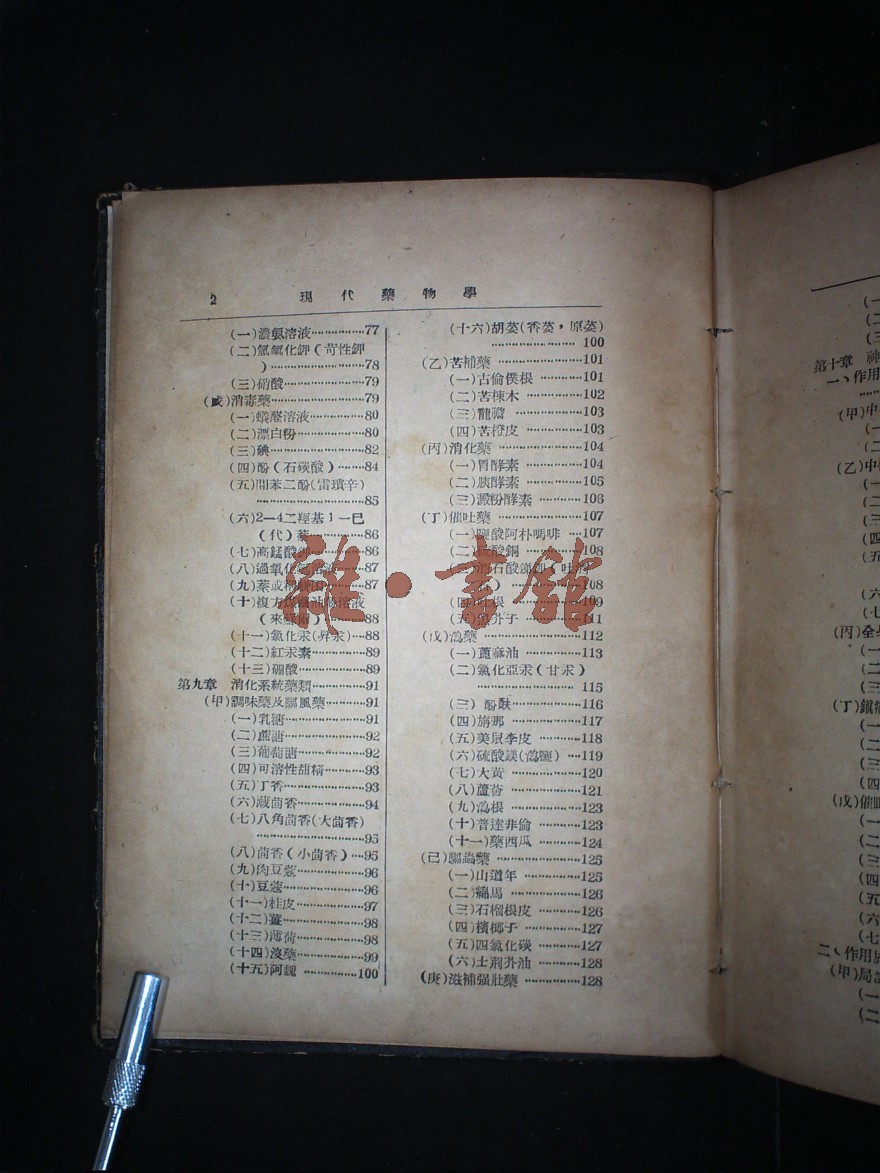 2 現代藥物學
(一)濃氨溶液……………77
(二)氫氧化鉀(苛性鉀
)……………………78
(三)硝酸………………79
消毒藥……………………79
(一)蟻醛溶液…………80
(二)漂白粉……………80
(三)碘…………………82
(四)酚(石碳酸)………84
(五)間苯二酚(雷瑣辛)
……………………………85
(六)2—4二羥基1一已
(代)……………86
(七)高錳酸……………86
(八)過氧化……………87
(九)萘或……………87
(十)複方……溶液
(來蘇……)………88
(十一)氯化汞(昇汞)…88
(十二)紅汞素…………89
(十三)硼酸……………89
第九章 消化系統藥類…………91
(甲)調味藥及驅風藥………91
(一)乳糖………………91
(二)蔗溏………………92
(三)葡萄溏……………92
(四)可溶性甜精………93
(五)丁香………………93
(六)藏茴香……………94
(七)八角茴香(大茴香)
……………………………95
(八)茴香(小茴香)……95
(九)肉豆蔻……………96
(十)豆蔻………………96
(十一)桂皮……………97
(十二)薑………………98
(十三)薄荷……………98
(十四)沒藥……………99
(十五)阿魏……………100
(十六)胡荽(香荽,原荽)
……………………100
(乙)苦補藥…………………101
(一)古倫僕根…………101
(二)苦楝木……………102
(三)龍膽………………103
(四)苦橙皮……………103
(丙)消化藥…………………104
(一)胃酵素……………104
(二)胰酵素……………105
(三)澱粉酵素…………106
(丁)催吐藥…………………107
(一)鹽酸阿朴嗎啡……107
(二)硫酸銅……………108
(三)酒石酸銻鉀(吐
)……………108
(四)吐根………………109
(五)黑芥子……………111
(戊)瀉藥……………………112
(一)蓖麻油……………113
(二)氯化亞汞(甘汞)
……………………115
(三)酚酞………………116
(四)旃那………………117
(五)美鼠李皮…………118
(六)硫酸鎂(瀉鹽)……119
(七)大黃………………120
(八)蘆薈………………121
(九)瀉根………………123
(十)普達非倫…………123
(十一)藥西瓜…………124
(己)驅蟲藥…………………125
(一)山道年……………125
(二)綿馬………………126
(三)石榴根皮…………126
(四)檳榔子……………127
(五)四氯化碳…………127
(六)土荊芥油…………128
(庚)滋補强壯藥……………128
第十章 神
一、作用
(甲)中
(乙)中
(丙)全身
(丁)鎮
(戊)催眠
二、作用
(甲)局部
龍·書館